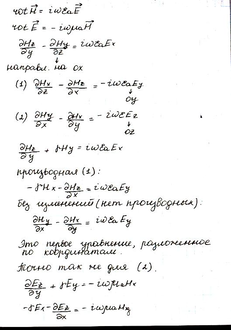 rot H⃗ = iωεaE⃗
rot E⃗ = -iωμaH⃗
∂Hz/∂y - ∂Hy/∂z = iωεaEx
↓
направл. на ox
(1) ∂Hx/∂z - ∂Hz/∂x = -iωεaEy
↓
oy
(2) ∂Hy/∂x - ∂Hx/∂y = -iωεEz
↓
oz
∂Hz/∂y + γHy = iωεaEx
производная (1):
-γHx - ∂Hz/∂x = iωεaEy
без изменений (нет производных):
∂Hy/∂x - ∂Hx/∂y = iωεaEy
Это первое уравнение, разложенное
по координатам.
Точно так же для (2).
∂Ez/∂y + γEy = -iωμaHx
-γEx - ∂Ez/∂x = -iωμaHy